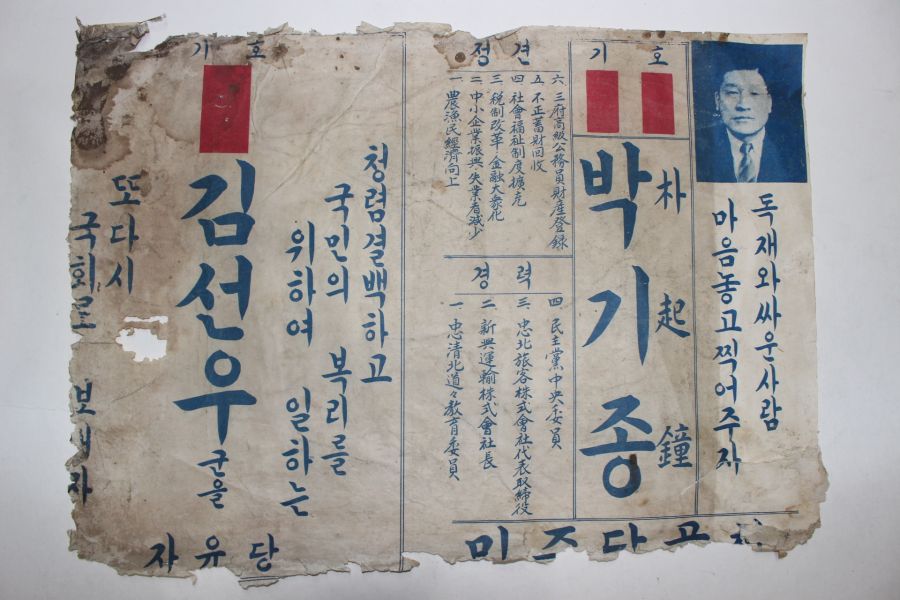 기호
박기종
朴起鐘
독재와 싸운 사람
마음 놓고 찍어주자
정견
一. 農漁民經濟向上
二. 中小企業振興 失業者減少
三. 税制改革 金融大衆化
四. 社會福祉制度擴充
五. 不正蓄財回收
六. 三府高級公務員財産登録
경력
一. 忠清北道々教育委員
二. 新興運輸株式會社長
三. 忠北旅客株式會社代表取締役
四. 民主黨中央委員
민주당공천
기호
청렴결백하고
국민의 복리를
위하여 일하는
김선우군을
또다시
국회로 보내자
자유당